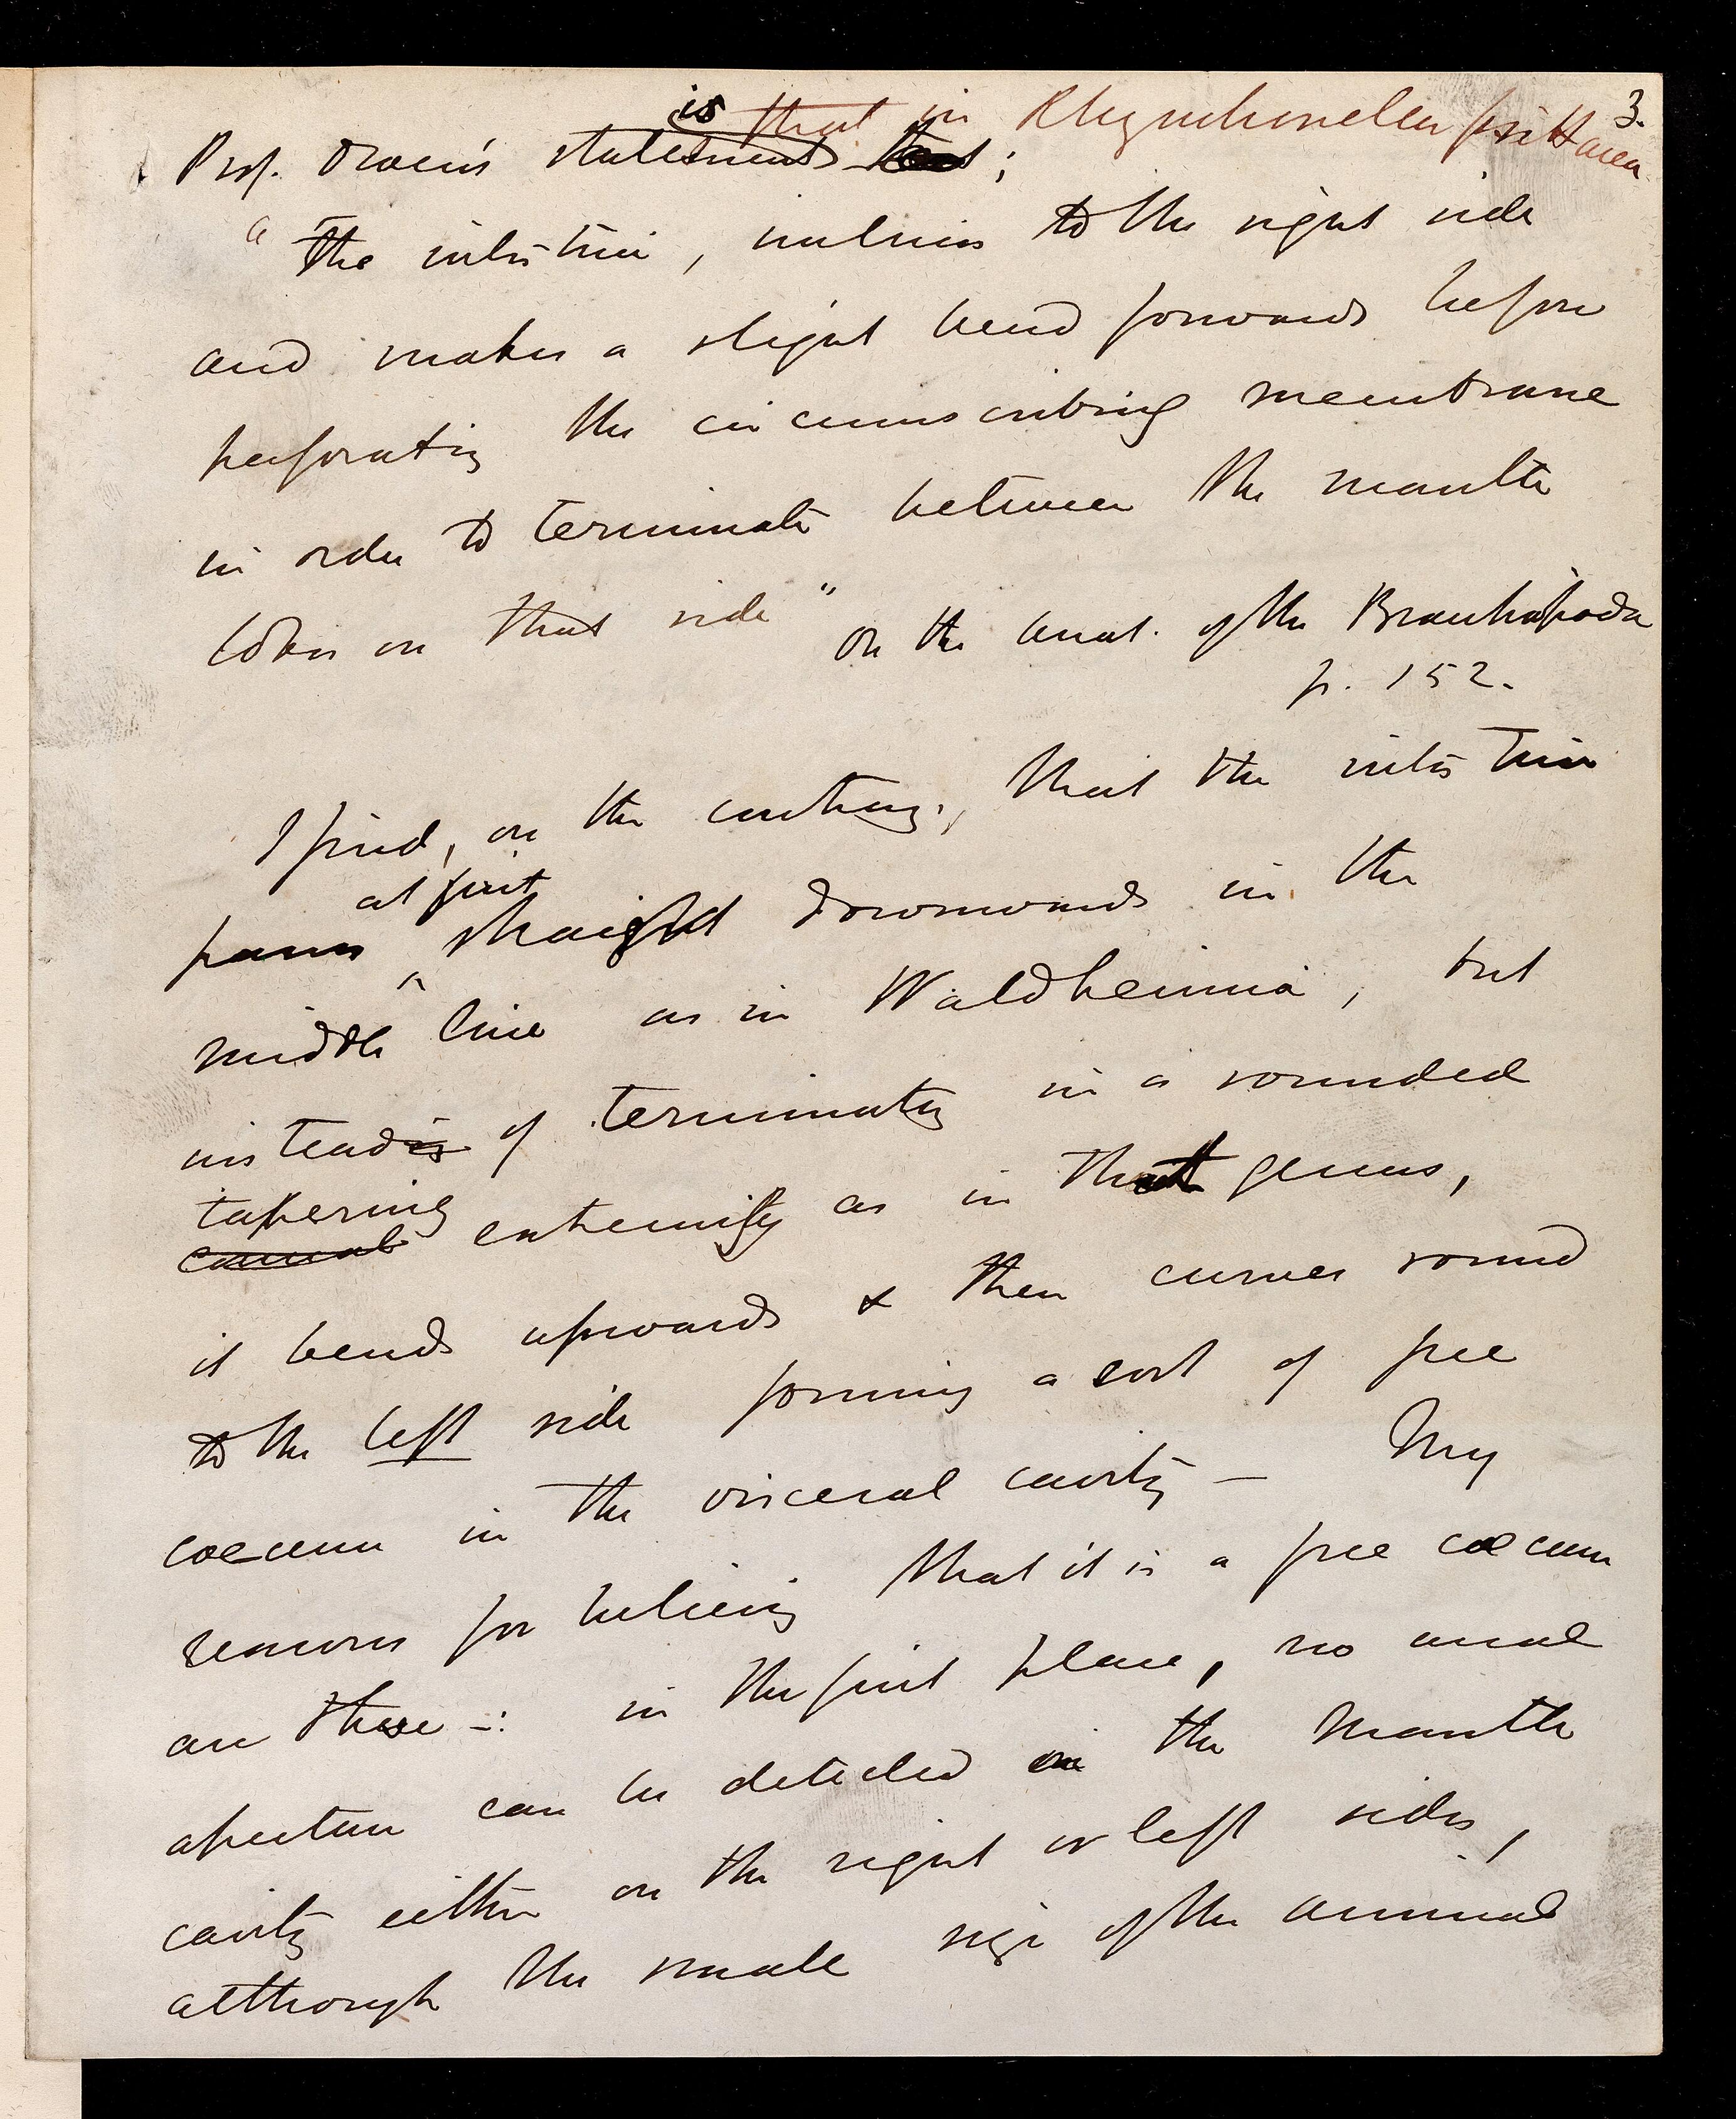 3.
is that in Rhynchonella psittacea
Prof. Owen's statement ;
"The intestine, inclines to the right side
and makes a slight bend forwards before
perforating the circumscribing membrane
in order to terminate between the mantle
lobes on that side" On the Anat. of the Brachiopoda
p. 152.
I find, on the contrary, that the intestine
at first
passes straight downwards in the
middle line as in Waldheimia, but
instead of terminating in a rounded
tapering
extremity as in that genus,
it bends upwards & then curves round
to the left side forming a sort of free
coecum in the visceral cavity – My
reasons for believing that it is a free coecum
are these –: in the first place, no anal
aperture can be detected in the mantle
cavity either on the right or left sides,
although the small size of the animal